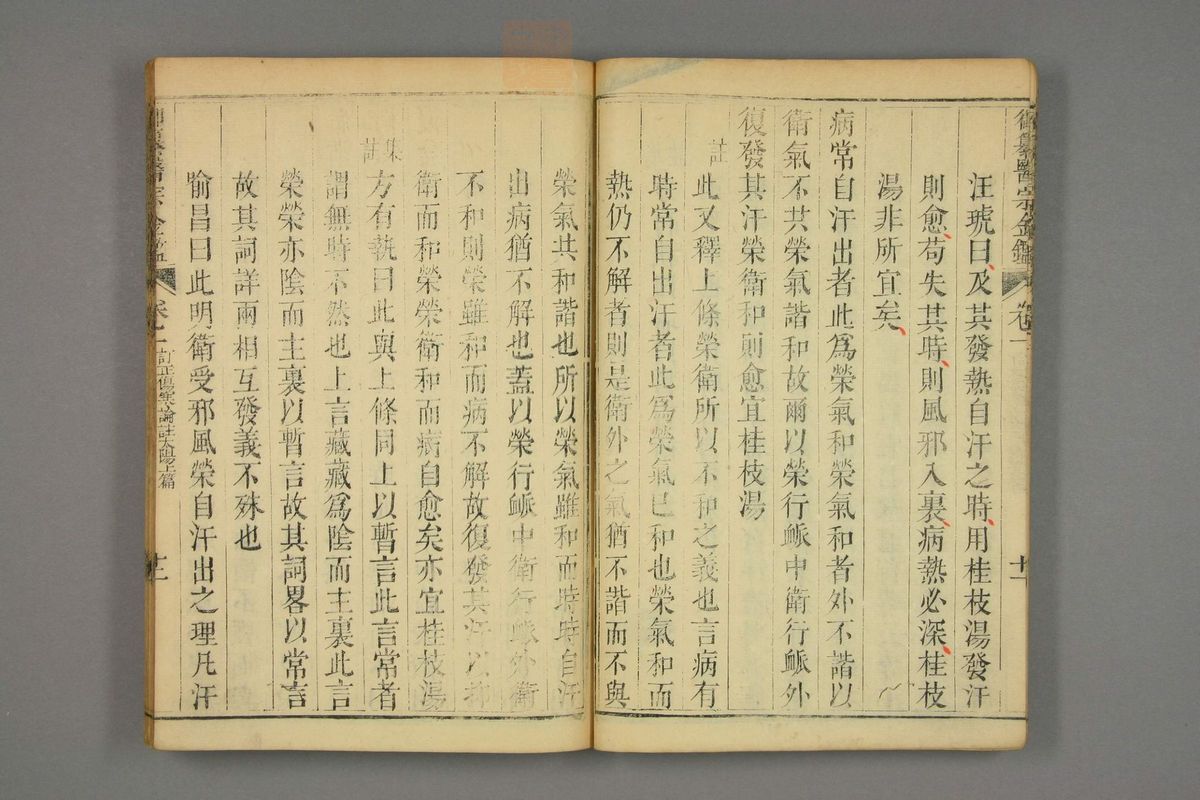 御纂醫宗金鑑
卷一
十一
汪琥曰及其發熱自汗之時用桂枝湯發汗
則愈苟失其時則風邪入裏病熱必深桂枝
湯非所宜矣
病常自汗出者此爲榮氣和榮氣和者外不諧以
衛氣不共榮氣諧和故爾以榮行脈中衛行脈外
復發其汗榮衛和則愈宜桂枝湯
註
此又釋上條榮衛所以不和之義也言病有
時常自出汗者此爲榮氣已和也榮氣和而
熱仍不解者則是衛外之氣猶不諧而不與
榮氣共和諧也所以榮氣雖和而時時自汗
出病猶不解也蓋以榮行脈中衛行脈外衛
不和則榮雖和而病不解故復發其汗以和
衛而和榮榮衛和而病自愈矣亦宜桂枝湯
集註
方有執曰此與上條同上以暫言此言常者
謂無時不然也上言藏藏爲陰而主裏此言
榮榮亦陰而主裏以暫言故其詞畧以常言
故其詞詳兩相互發義不殊也
喻昌曰此明衛受邪風榮自汗出之理凡汗
卷一
訂正傷寒論註太陽上篇